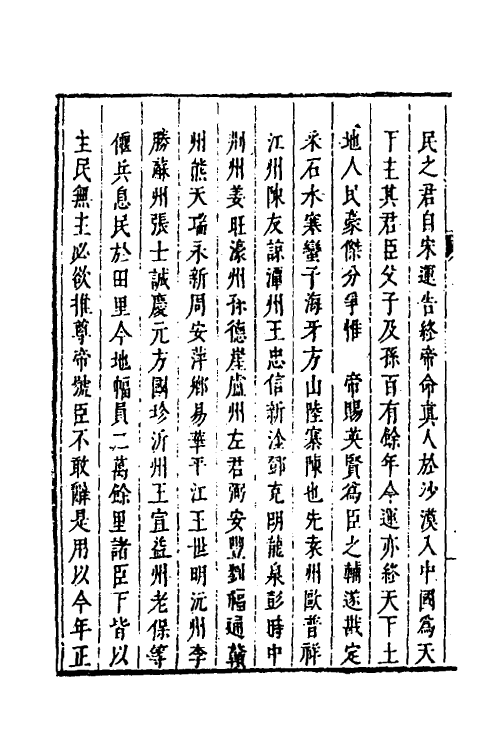 民之君自宋運告終帝命真人於沙漠入中國為天
下主其君臣父子及孫百有餘年今運亦終天下土
地人民豪傑分爭惟　帝賜英賢為臣之輔遂戡定
采石水寨蠻子海牙方山陸寨陳也先袁州歐普祥
江州陳友諒潭州王忠信新淦鄧克明龍泉彭時中
荆州姜珏濠州孫德崖廬州左君弼安豐劉福通贛
州熊天瑞永新周安萍鄉易華平江王世明沅州李
勝蘇州張士誠慶元方國珍沂州王宣益州老保等
偃兵息民於田里今地幅員二萬餘里諸臣下皆以
主民無主必欲推尊帝號臣不敢辭是用以今年正